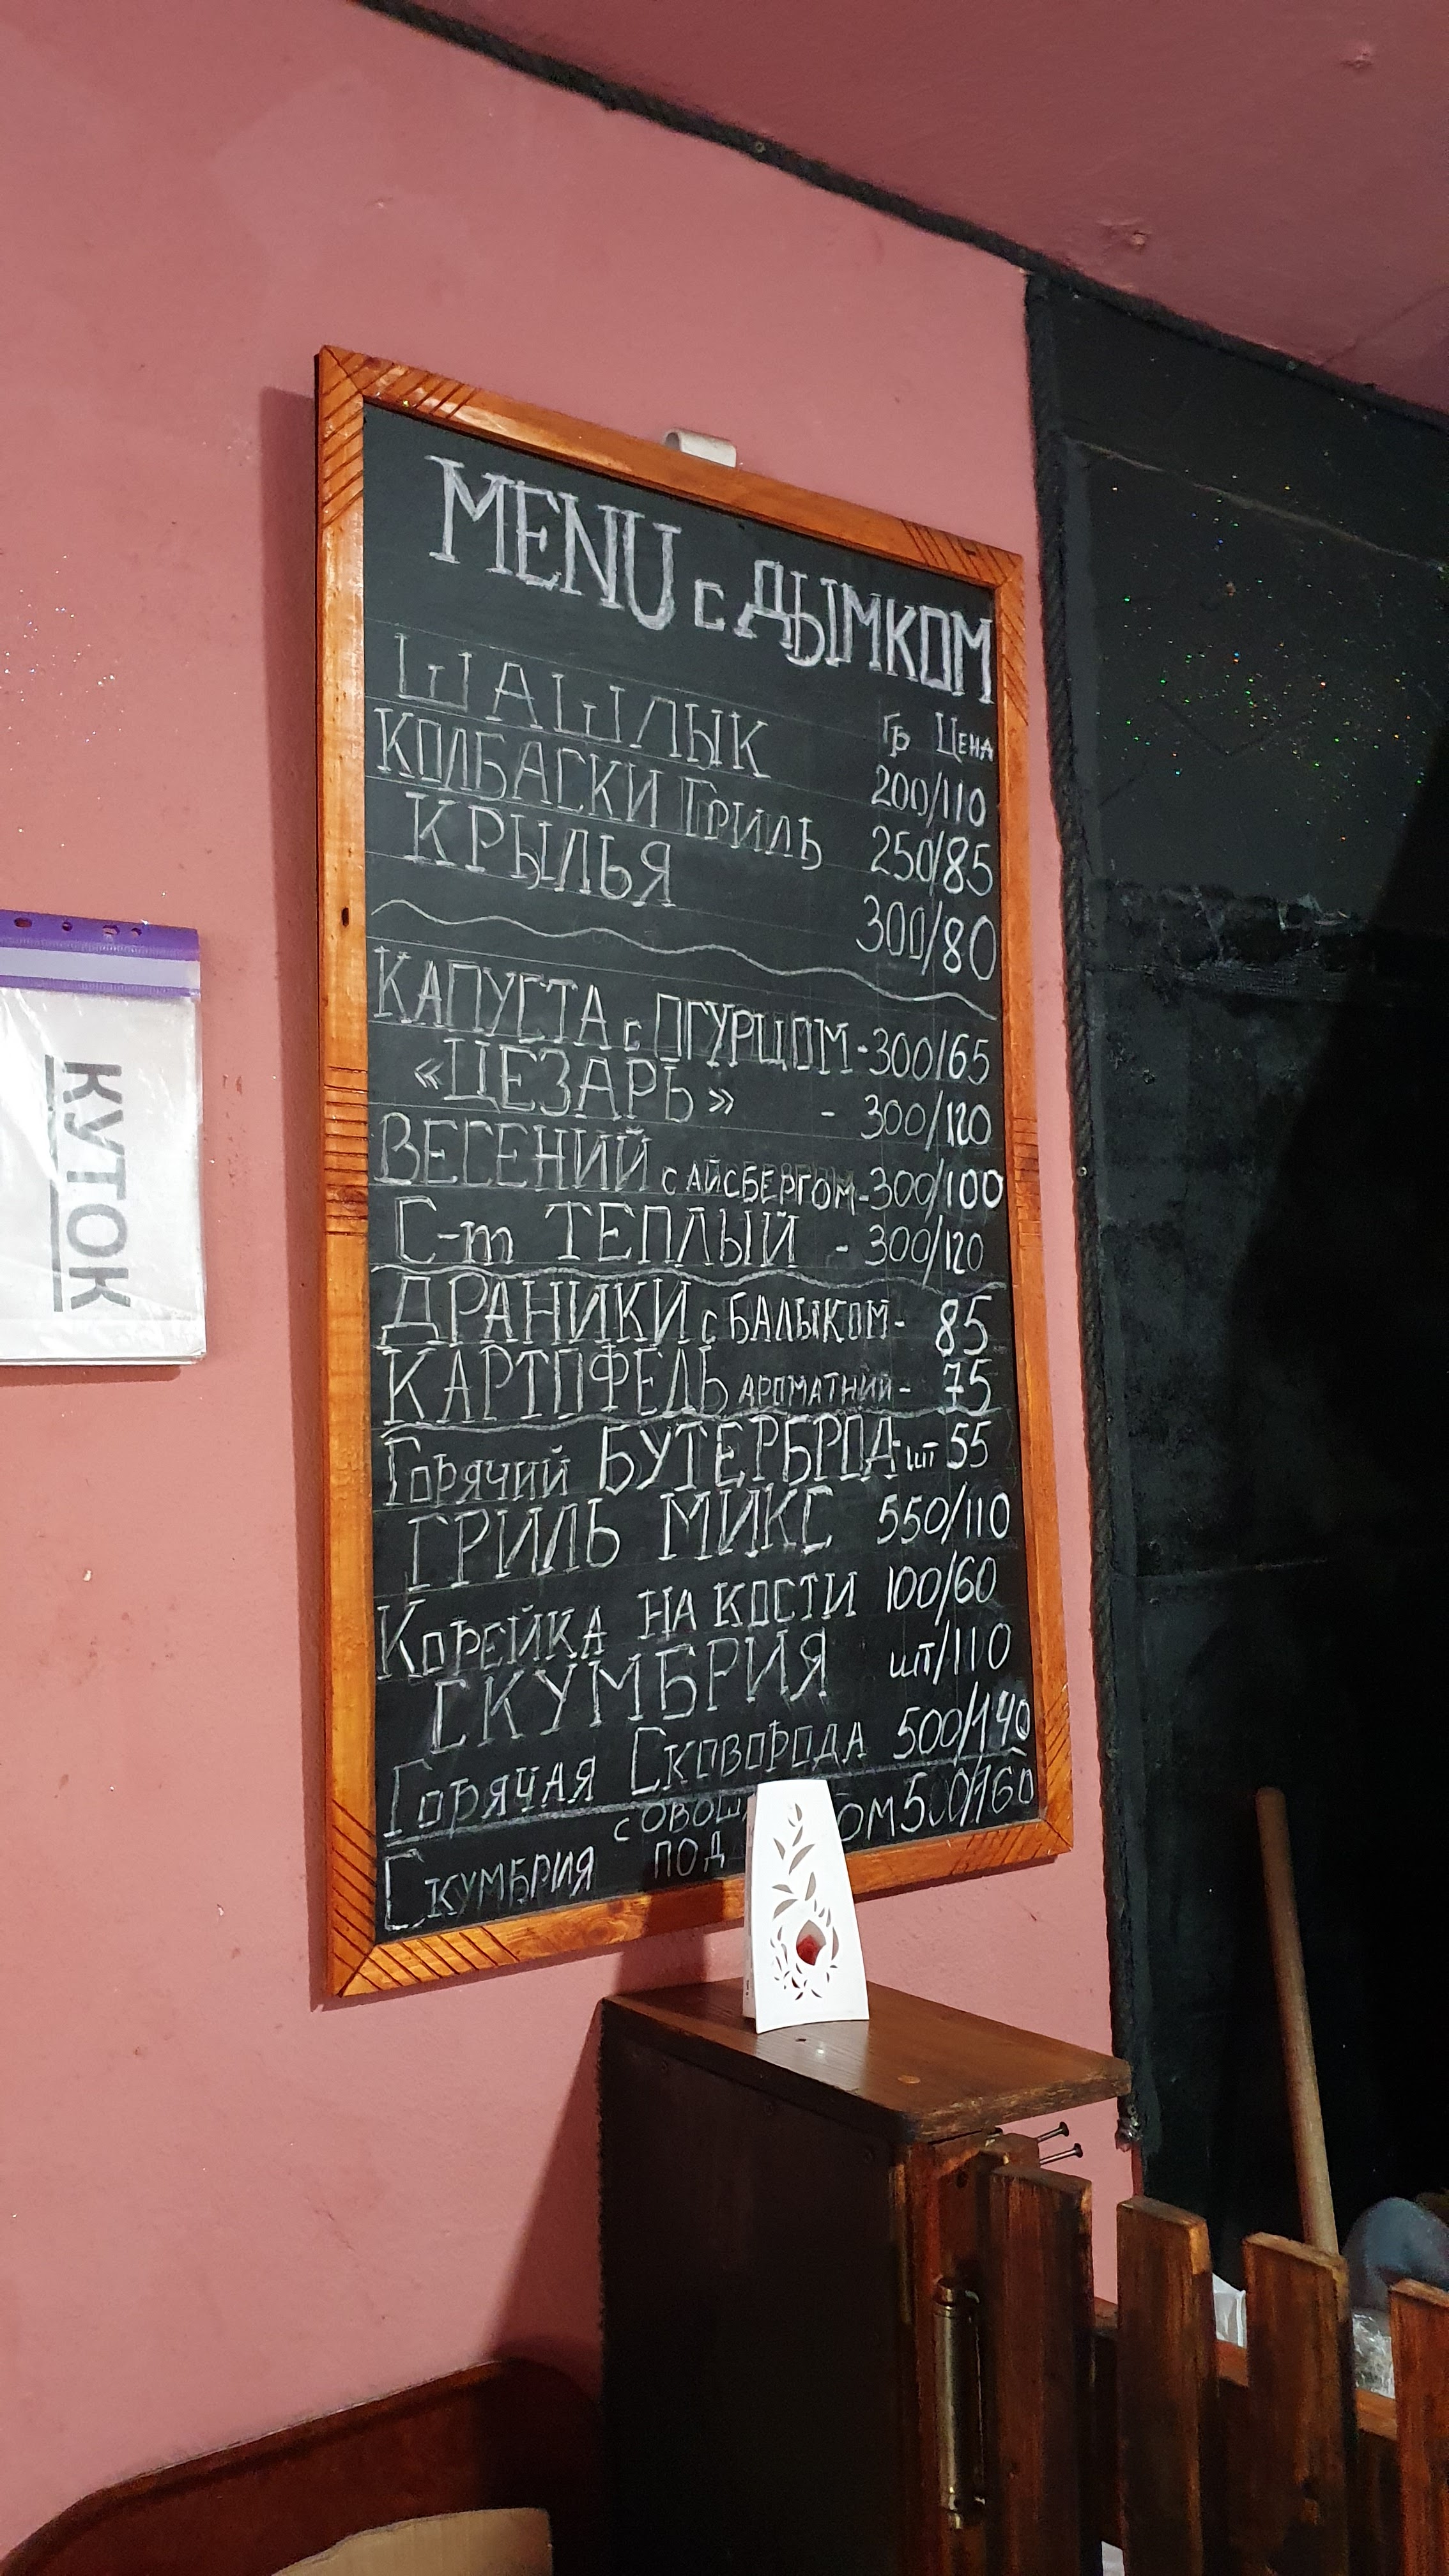 MENU с ДЫМКОМ
Гр Цена
ШАШЛЫК 200/110
КОЛБАСКИ ГРИЛЬ 250/85
КРЫЛЬЯ 300/80
КАПУСТА с ОГУРЦОМ - 300/65
«ЦЕЗАРЬ» - 300/120
ВЕСЕНИЙ с АЙСБЕРГОМ - 300/100
С-т ТЕПЛЫЙ - 300/120
ДРАНИКИ с БАЛЫКОМ - 85
КАРТОФЕЛЬ АРОМАТНИЙ - 75
Горячий БУТЕРБРОД - шт 55
ГРИЛЬ МИКС 550/110
Корейка НА КОСТИ 100/60
СКУМБРИЯ шт/110
Горячая Сковорода 500/140
с 500/160
Скумбрия ПОД
КУТОК